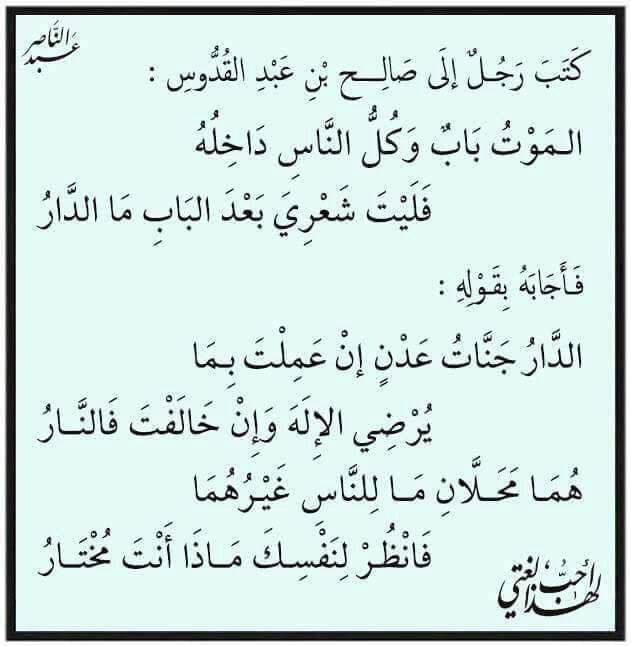 عبد الناصر
كَتَبَ رَجُلٌ إلَى صَالِـــح بْنِ عَبْدِ القُدُّوسِ :
المَوْتُ بَابٌ وَكُلُّ النَّاسِ دَاخِلُهُ
فَلَيْتَ شَعْرِيَ بَعْدَ البَابِ مَا الدَّارُ
فَـأَجَابَهُ بِقَـوْلِهِ :
الدَّارُ جَنَّاتُ عَدْنٍ إنْ عَمِلْتَ بِـمَا
يُرْضِي الإِلَهَ وَإِنْ خَالَفْتَ فَالنَّـارُ
هُمَـا مَحَـلَّانِ مَـا لِلنَّاسِ غَيْـرُهُمَا
فَانْظُرْ لِنَفْسِكَ مَـاذَا أَنْتَ مُخْتَـارُ
لهذا أحب لغتي